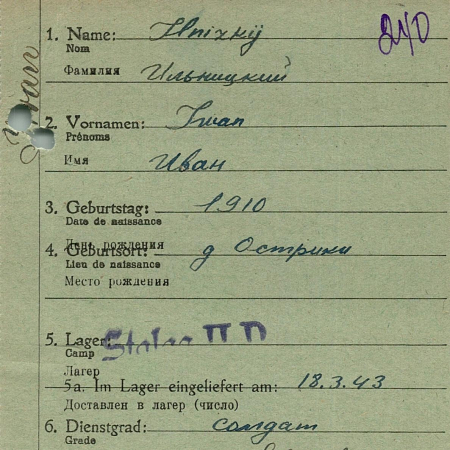 240
1. Name: Ilnizkij
Nom
Фамилия Ильницкий
2. Vornamen: Iwan
Prénoms
Имя Иван
3. Geburtstag: 1910
Date de naissance
День рождения
4. Geburtsort: д Острики
Lieu de naissance
Место рождения
5. Lager: Stalag II D
Camp
Лагерь
5a. Im Lager eingeliefert am: 18.3.43
Доставлен в лагерь (число)
6. Dienstgrad: солдат
Grade